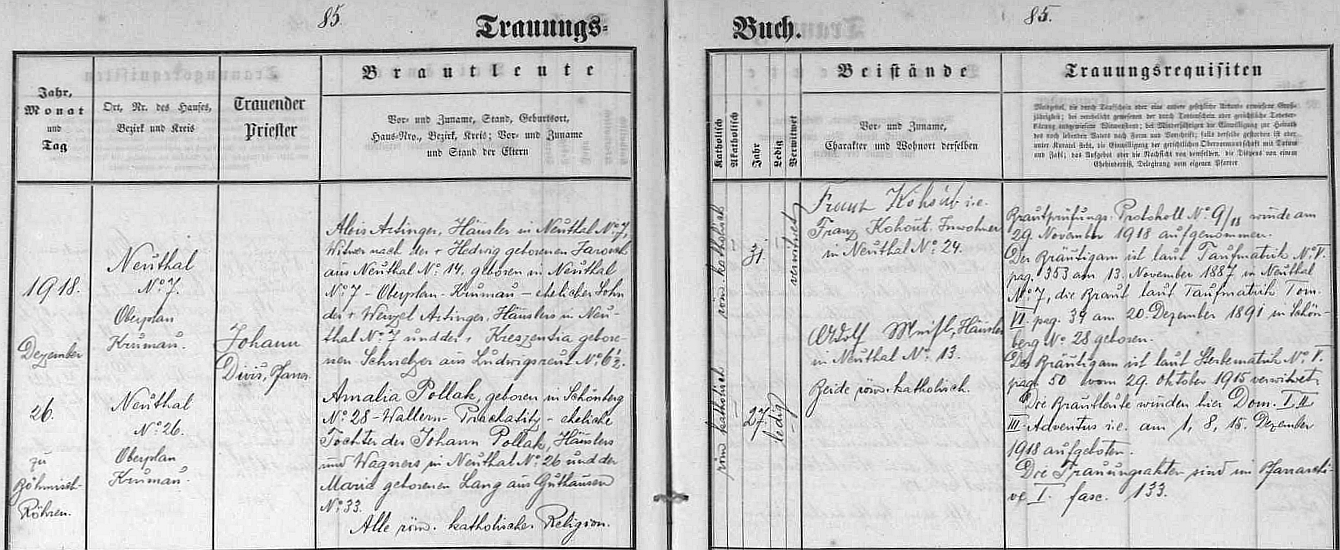 85.
Trauungs=
Jahr,
Monat
und
Tag
Ort, Nr. des Hauses,
Bezirk und Kreis
Trauender
Priester
Brautleute
Vor- und Zuname, Stand, Geburtsort,
Haus-Nro., Bezirk, Kreis; Vor- und Zuname
und Stand der Eltern
1918.
Dezember
26.
zu
Böhmisch-
Röhren.
Neuthal
No 7.
Oberplan
Krumau.
Neuthal
No 26.
Oberplan
Krumau.
Johann
Diviš, Pfarrer
Alois Artinger, Häusler in Neuthal No 7,
Witwer nach der + Hedwig geborenen Jarosch
aus Neuthal No 14, geboren in Neuthal
No 7 – Oberplan – Krumau – ehelicher Sohn
des + Wenzel Artinger, Häuslers in Neu-
thal No 7 und der + Kreszentia gebore-
nen Schmelzer aus Ludwigsreut No 6½.
Amalia Pollak, geboren in Schönberg
No 28 – Wallern – Prachatitz – eheliche
Tochter des Johann Pollak, Häuslers
und Wagners in Neuthal No 26 und der
Maria geborenen Lang aus Guthausen
No 33.
Alle röm. katholischer Religion.
Buch.
85.
Katholisch
Akatholisch
Jahr
Ledig
Verwitwet
Beistände
Vor- und Zuname,
Charakter und Wohnort derselben
Trauungsrequisiten
röm. katholisch
31.
verwitwet
röm. katholisch
27.
ledig
Franz Kohout i.e.
Franz Kohout, Inwohner
in Neuthal No 24.
Adolf Häusler
in Neuthal No 13.
Beide röm. katholisch.
Brautprüfungs-Protokoll No 9/18 wurde am
29. November 1918 aufgenommen.
Der Bräutigam ist laut Taufmatrik No V.
pag. 353 am 13. November 1887 in Neuthal
No 7, die Braut laut Taufmatrik Tom.
VI pag. 39 am 20. Dezember 1891 in Schön-
berg No 28 geboren.
Der Bräutigam ist laut Sterbematrik No V.
pag. 50 vom 29. Oktober 1915 verwitwet.
Die Brautleute wurden hier Dom. I, II
III Adventus i.e. am 1, 8, 15. Dezember
1918 aufgeboten.
Die Trauungsakten sind im Pfarrarchi-
ve I. fasc. 133.